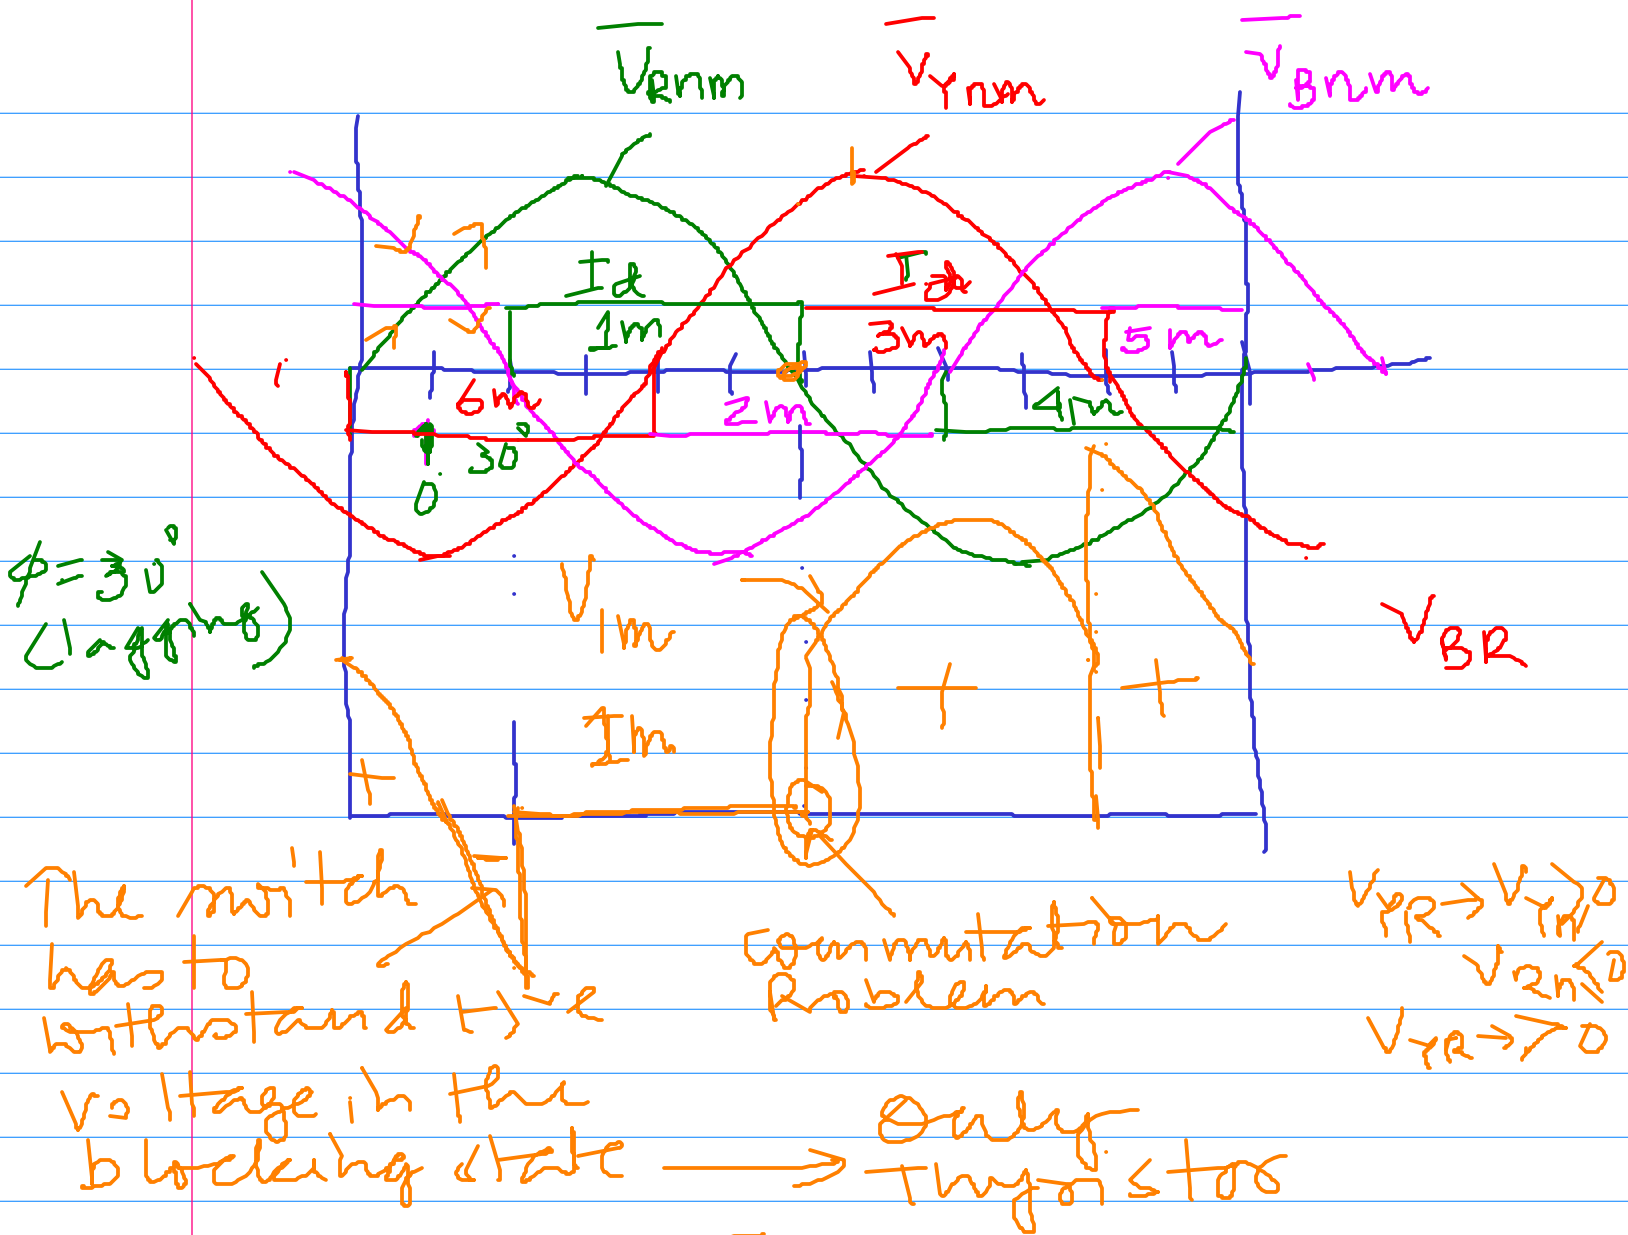 V̅Rnm V̅Ynm V̅Bnm
Id Id
1m 3m 5m
6m 2m 4m
30°
0
φ = 30°
(lagging)
V1m
Im
VBR
+ - + +
The switch
has to
withstand +/-ve
voltage in the
blocking state → Only
Thyristor
Commutation
Problem
VYR → VYn > 0
VRn < 0
VYR → > 0